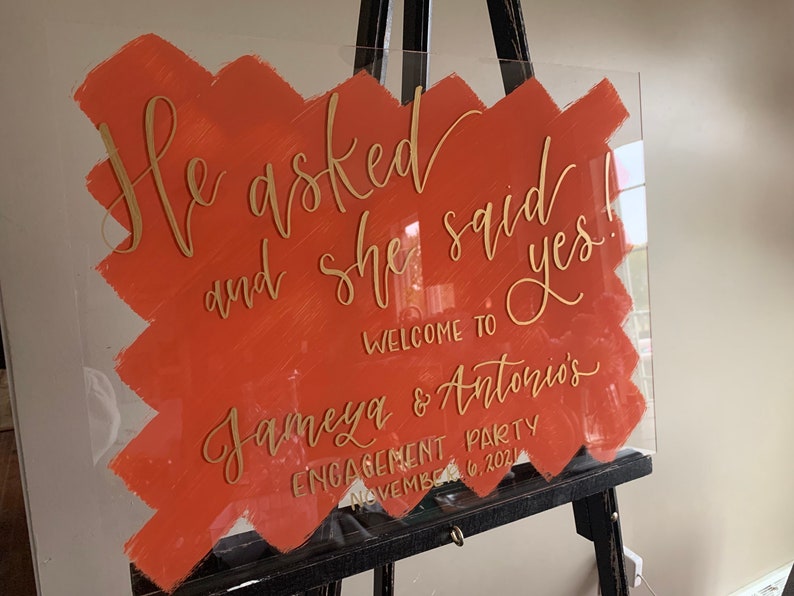 He asked
and she said
yes!
WELCOME TO
Jameya & Antonio's
ENGAGEMENT PARTY
NOVEMBER 6, 2021